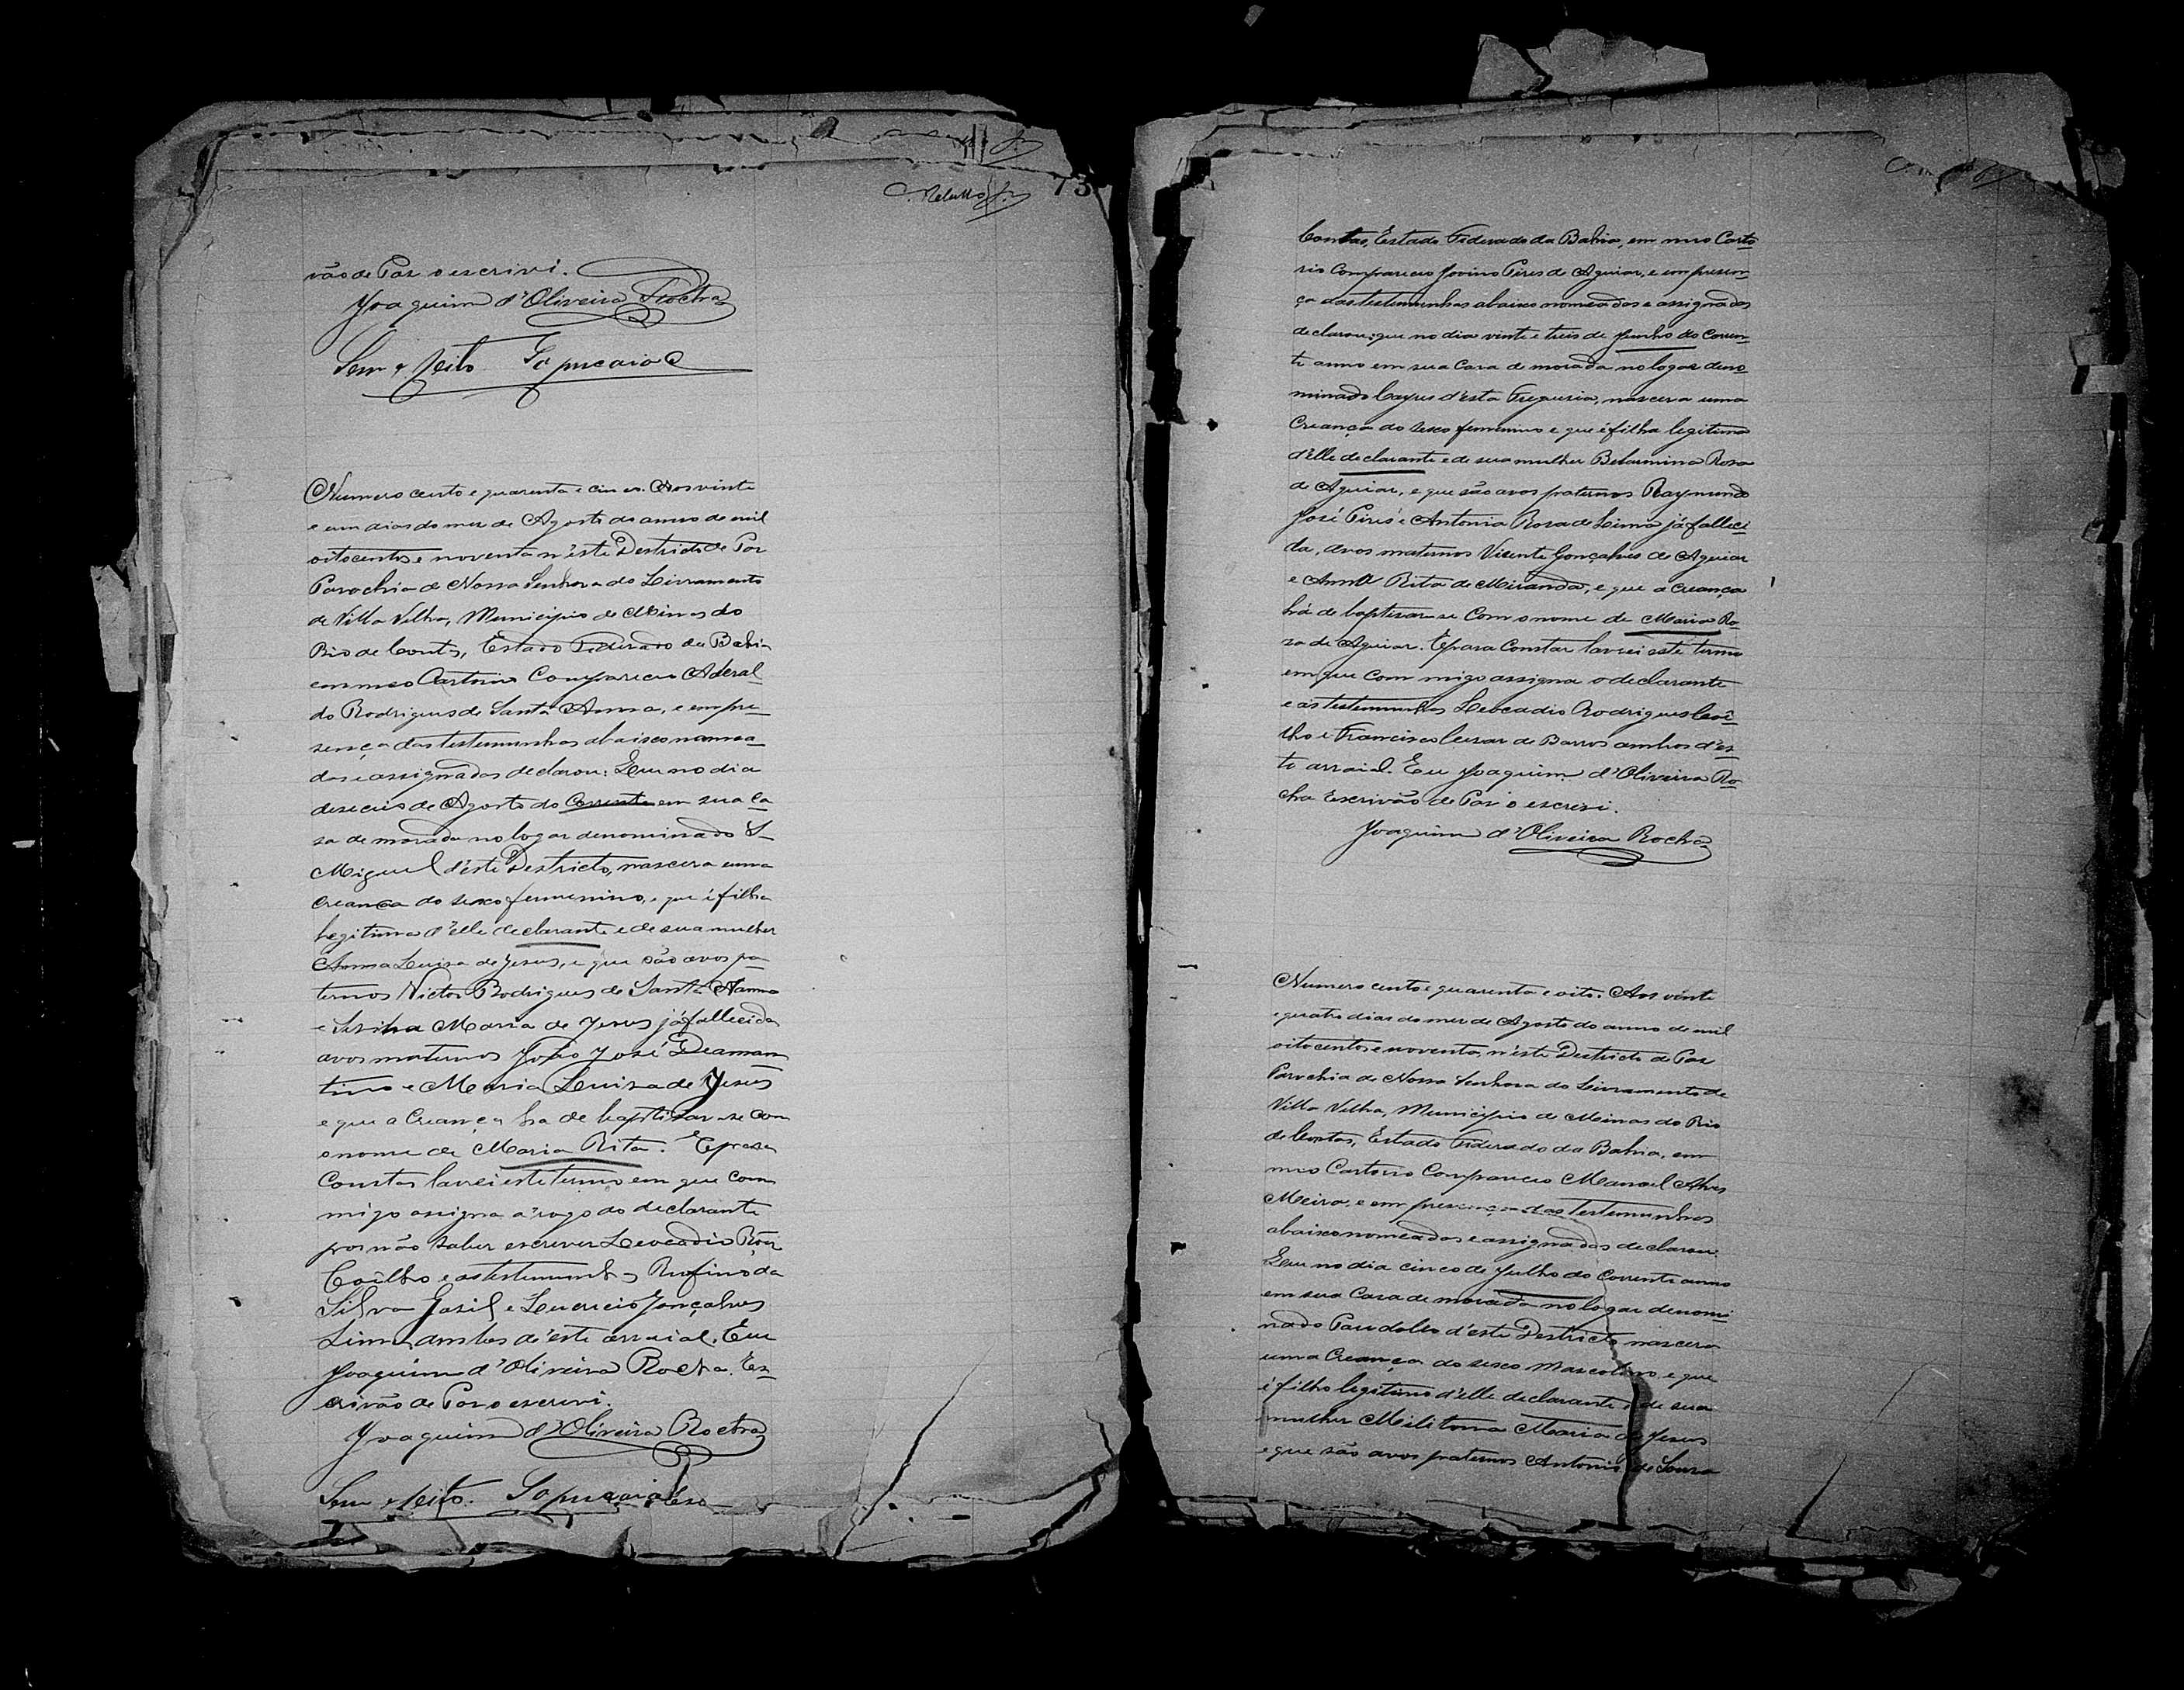 73
vão de Paz o escrivi.
Joaquim d'Oliveira Rocha
Sem effeito
Numero cento e quarenta e cinco. Aos vinte
e um dias do mez de Agosto do anno de mil
oitocentos e noventa n'este Destricto de Paz
Parochia de Nossa Senhora do Livramento
de Villa Velha, Municipio de Minas do
Rio de Contas, Estado Federado da Bahia
em meo Cartorio Compareceo Aderal-
do Rodrigues de Santa Anna, e em pre-
sença das testemunhas abaixo nomea-
das e assignadas declarou: Que no dia
deseceis de Agosto do Corrente em sua ca-
sa de morada no logar denominado S-
Miguel d'este Destricto, nascera uma
creança do sexo femenino, e que é filha
legitima d'elle declarante e de sua mulher
Anna Luisa de Jesus, e que são avos pa-
ternos Victor Rodrigues de Santa Anna
e Maria de Jesus já fallecidos
avos maternos João José Deaman
tino e Maria Luisa de Jesus
e que a Creança ha de baptisar-se com
o nome de Maria Rita. E para
Constar lavrei este termo em que com
migo assigna a rogo do declarante
por não saber escrever Leocadio Roiz
Coêlho e as testemunhas Rufino da
Silva e Lucrecio Gonçalves
Lima ambos d'este arraial. Eu
Joaquim d'Oliveira Rocha Es-
crivão de Paz o escrevi.
Joaquim d'Oliveira Rocha
Sem effeito.
Contas, Estado Federado da Bahia, em meo Carto-
rio Compareceo Jovino Pires de Aguiar, e em presen-
ça das testemunhas abaixo nomeadas e assignadas
declarou: que no dia vinte e treis de Junho do Corren-
te anno em sua Casa de morada no logar deno-
minado d'esta Freguesia, nascera uma
Creança do sexo femenino e que é filha legitima
d'elle declarante e de sua mulher Belarmina Rosa
de Aguiar, e que são avos paternos Raymundo
José Pires e Antonia Rosa de Lima já falleci
da, avos maternos Vicente Gonçalves de Aguiar
e Anna Rita de Miranda, e que a creança
há de baptisar-se Com o nome de Maria Ro-
sa de Aguiar. E para Constar lavrei este termo
em que Com migo assigna o declarante
e as testemunhas Leocadio Rodrigues Coê-
lho e Francisco Cesar de Barros ambos d'es-
te arraial. Eu Joaquim d'Oliveira Ro-
cha Escrivão de Paz o escrevi.
Joaquim d'Oliveira Rocha
Numero cento e quarenta e oito. Aos vinte
e quatro dias do mez de Agosto do anno de mil
oitocentos e noventa, n'este Destricto de Paz
Parochia de Nossa Senhora do Livramento de
Villa Velha, Municipio de Minas do Rio
de Contas, Estado Federado da Bahia, em
meo Cartorio Compareceo Manoel Alves
Meira, e em presença das testemunhas
abaixo nomeadas e assignadas declarou:
Que no dia cinco de Julho do Corrente anno
em sua Casa de morada no logar denomi
nado d'este Destricto nascera
uma Creança do sexo Mascolino, e que
é filho legitimo d'elle declarante e de sua
mulher Militona Maria de Jesus
e que são avos paternos Antonio de Souza